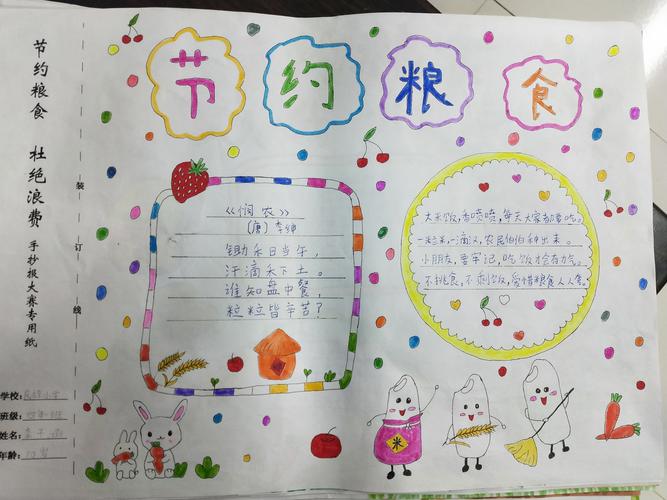 节约粮食 杜绝浪费
手抄报大赛专用纸
装订线
学校:
班级:
姓名:
年龄:
节约粮食
《悯农》
(唐)李绅
锄禾日当午,
汗滴禾下土。
谁知盘中餐,
粒粒皆辛苦?
大米饭,香喷喷,每天大家都要吃。
一粒米,一滴汉,农民伯伯种出来。
小朋友,要牢记,吃饭才会有力气。
不挑食,不剩饭,爱惜粮食人人夸。
米